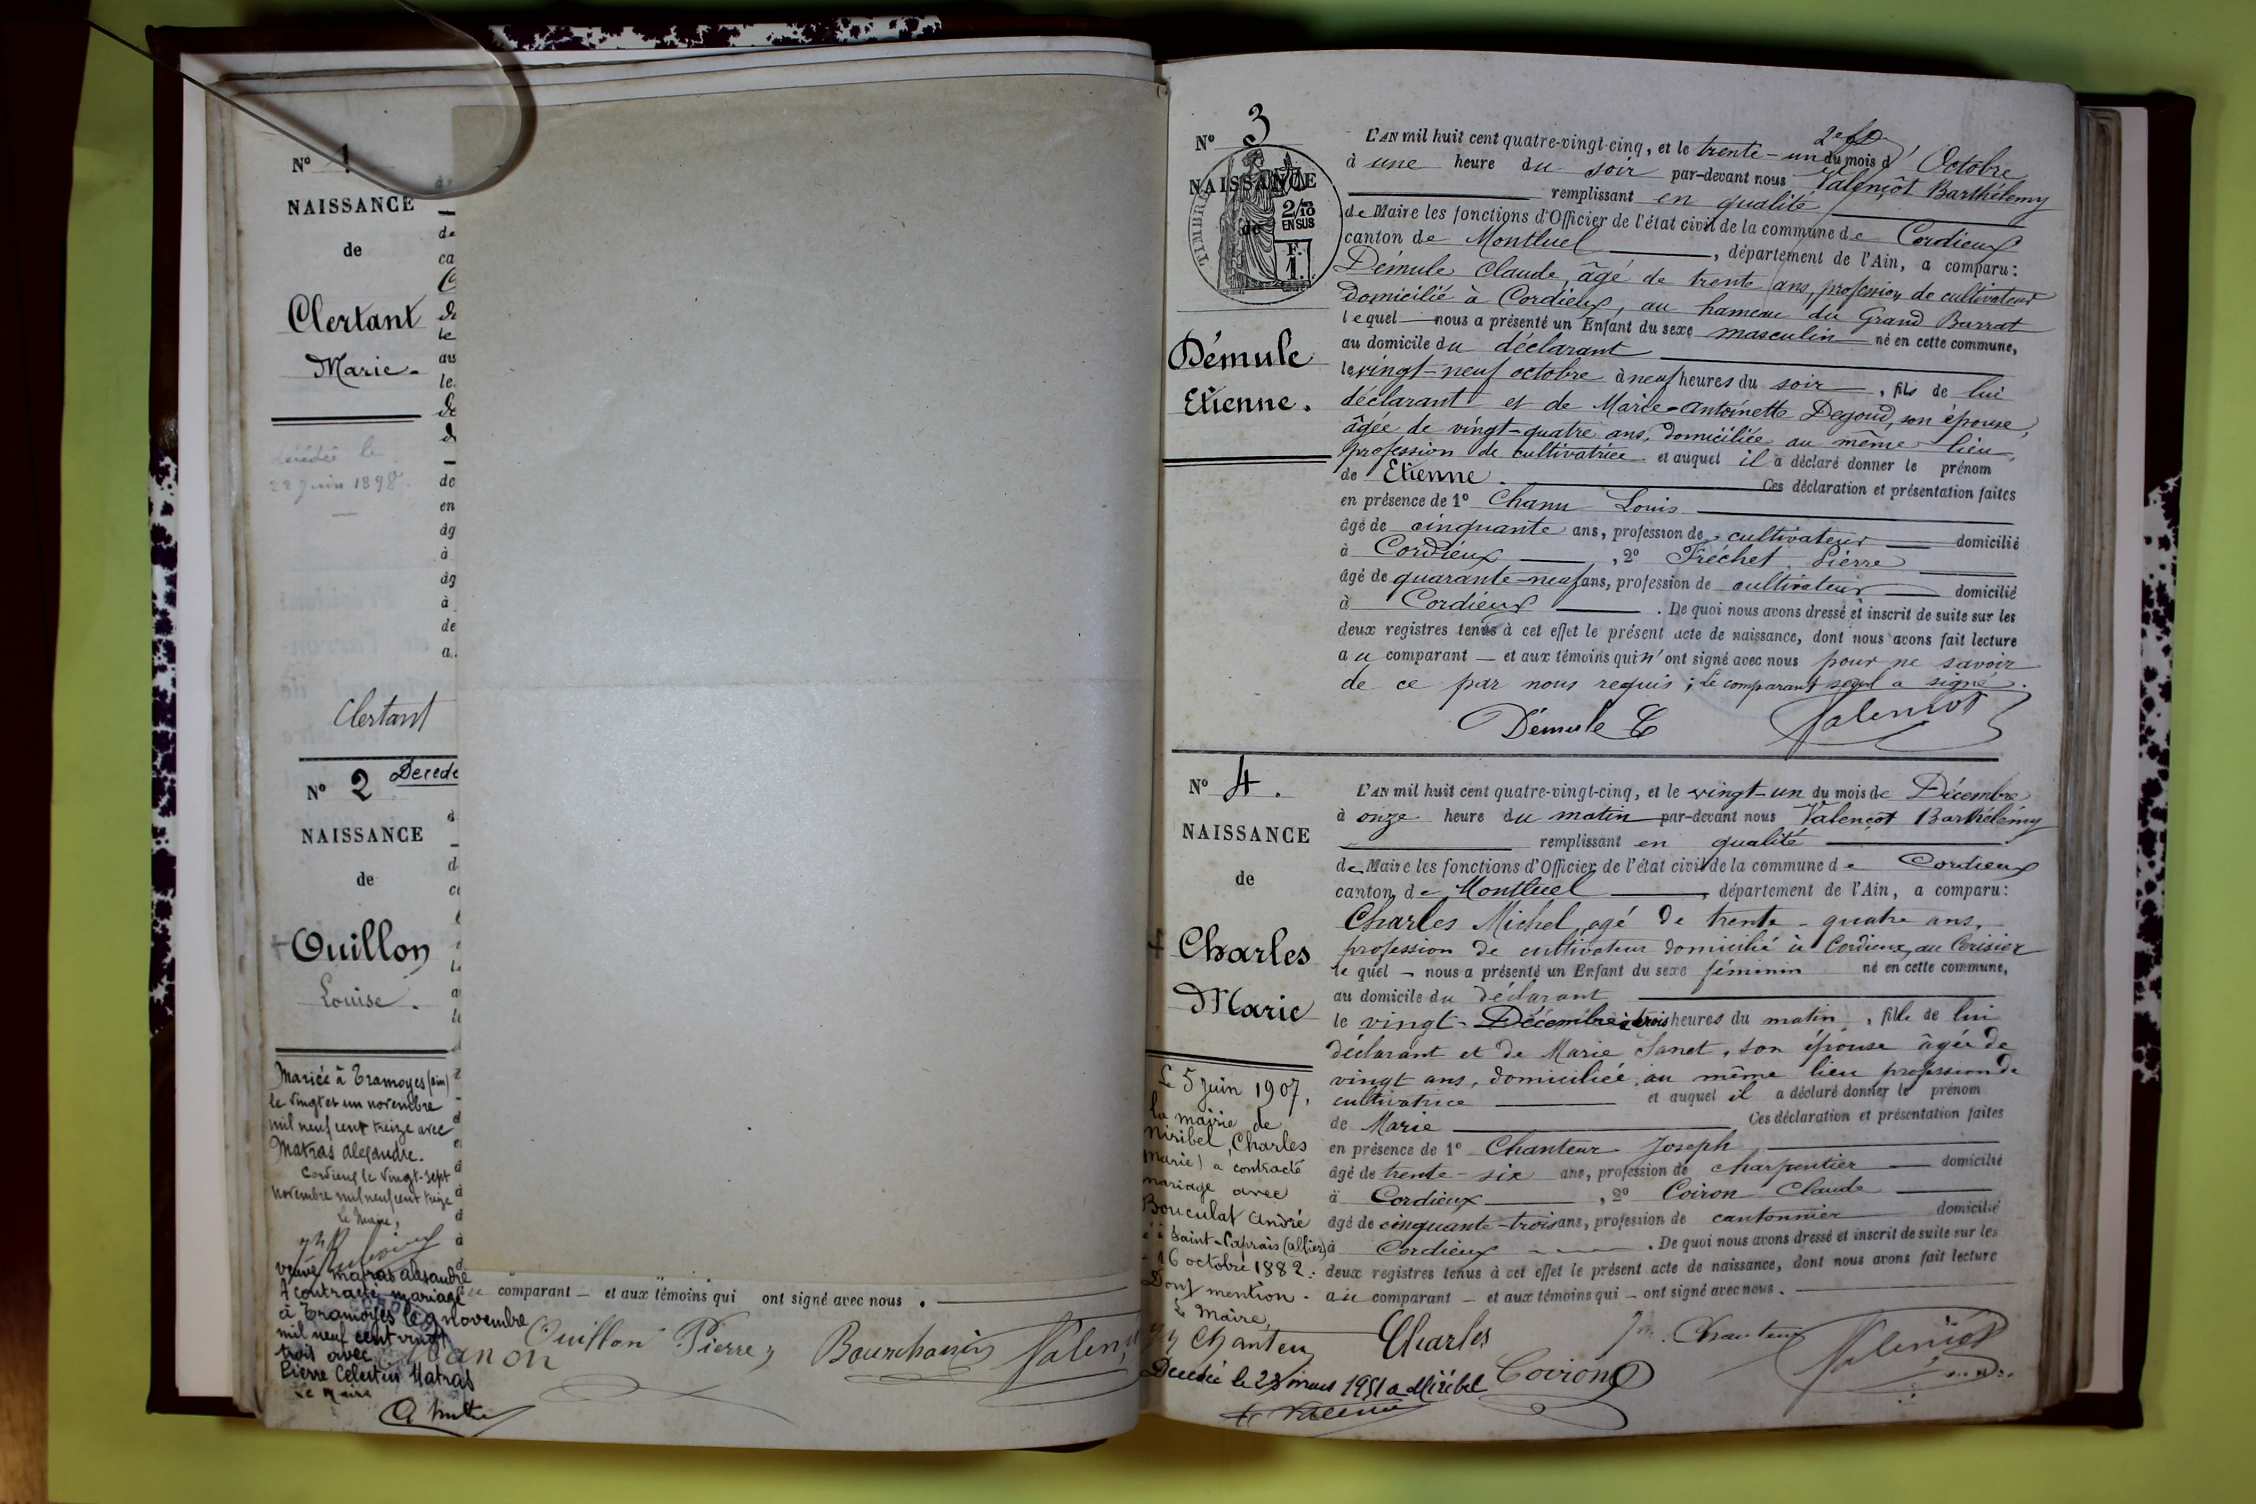 N° 1
NAISSANCE
de
Clertant
Marie.
décédée le
22 Juin 1898.
Clertant
N° 2 Décédé
NAISSANCE
de
Ouillon
Louise.
Mariée à Tramoyes (ain)
le vingt et un novembre
mil neuf cent treize avec
Matras alexandre.
Cordieux le vingt-sept
novembre mil neuf cent treize
Le Maire,
veuve matras alexandre
a contracté mariage
à Tramoyes le 9 novembre
mil neuf cent vingt
trois avec
Pierre Célestin Matras
Le Maire
comparant — et aux témoins qui ont signé avec nous .
Ouillon Pierre
N° 3
NAISSANCE
de
TIMBRE
2/10
EN SUS
F.
1.
Démule
Etienne.
L'AN mil huit cent quatre-vingt-cinq, et le trente-un du mois d'Octobre
à une heure du soir par-devant nous Valençôt Barthélemy
remplissant en qualité
de Maire les fonctions d'Officier de l'état civil de la commune de Cordieux
canton de Montluel, département de l'Ain, a comparu:
Démule Claude, âgé de trente ans, profession de cultivateur
domicilié à Cordieux, au hameau du Grand Barrat
lequel nous a présenté un Enfant du sexe masculin né en cette commune,
au domicile du déclarant
le vingt-neuf octobre à neuf heures du soir, fils de lui
déclarant et de Marie-Antoinette Degoud, son épouse,
âgée de vingt-quatre ans, domiciliée au même lieu,
profession de cultivatrice et auquel il a déclaré donner le prénom
de Etienne. Ces déclaration et présentation faites
en présence de 1° Chanu Louis
âgé de cinquante ans, profession de cultivateur domicilié
à Cordieux, 2° Fréchet Pierre
âgé de quarante-neuf ans, profession de cultivateur domicilié
à Cordieux. De quoi nous avons dressé et inscrit de suite sur les
deux registres tenus à cet effet le présent acte de naissance, dont nous avons fait lecture
au comparant — et aux témoins qui n'ont signé avec nous pour ne savoir
de ce par nous requis; le comparant seul a signé.
Démule C Valençot
N° 4.
NAISSANCE
de
Charles
Marie
Le 5 Juin 1907,
la mairie de
Miribel, Charles
(Marie) a contracté
mariage avec
Bouculat André
né à Saint-Caprais (allier)
16 octobre 1882.
Dont mention.
Le Maire,
Chanteur
Décédée le 23 mars 1951 à Miribel
L'AN mil huit cent quatre-vingt-cinq, et le vingt-un du mois de Décembre
à onze heure du matin par-devant nous Valençot Barthélémy
remplissant en qualité
de Maire les fonctions d'Officier de l'état civil de la commune de Cordieux
canton de Montluel, département de l'Ain, a comparu:
Charles Michel, agé de trente-quatre ans,
profession de cultivateur domicilié à Cordieux, au Cerisier
le quel — nous a présenté un Enfant du sexe féminin né en cette commune,
au domicile du déclarant
le vingt-Décembre à trois heures du matin, fille de lui
déclarant et de Marie Janet, son épouse âgée de
vingt ans, domiciliée au même lieu profession de
cultivatrice et auquel il a déclaré donner le prénom
de Marie Ces déclaration et présentation faites
en présence de 1° Chanteur Joseph
âgé de trente-six ans, profession de charpentier domicilié
à Cordieux, 2° Coiron Claude
âgé de cinquante-trois ans, profession de cantonnier domicilié
à Cordieux. De quoi nous avons dressé et inscrit de suite sur les
deux registres tenus à cet effet le présent acte de naissance, dont nous avons fait lecture
au comparant — et aux témoins qui — ont signé avec nous.
Charles Chanteur Valençot
Coiron